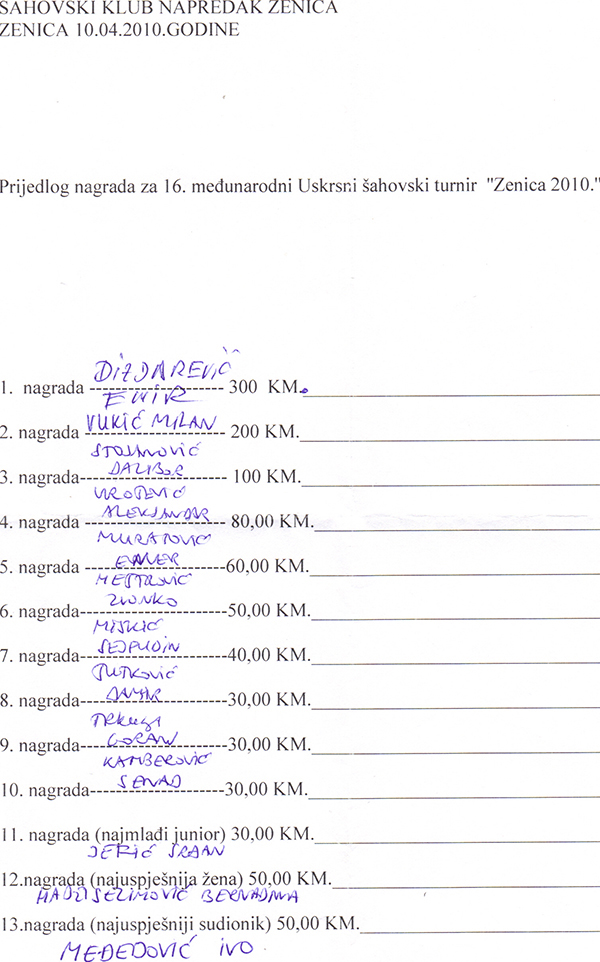 SAHOVSKI KLUB NAPREDAK ZENICA
ZENICA 10.04.2010.GODINE
Prijedlog nagrada za 16. međunarodni Uskrsni šahovski turnir "Zenica 2010."
DIZDAREVIĆ
1. nagrada --------------------- 300 KM.
EMIR
VUKIĆ MILAN
2. nagrada --------------------- 200 KM.
STOJANOVIĆ
DALIBOR
3. nagrada---------------------- 100 KM.
ALEKSANDAR
4. nagrada --------------------- 80,00 KM.
MURATOVIĆ
ENVER
5. nagrada ---------------------60,00 KM.
MEŠTROVIĆ
ZVONKO
6. nagrada----------------------50,00 KM.
MISKIĆ
SEJFUDIN
7. nagrada----------------------40,00 KM.
DAMIR
8. nagrada----------------------30,00 KM.
GORAN
9. nagrada----------------------30,00 KM.
KAMBEROVIĆ
SENAD
10. nagrada--------------------30,00 KM.
11. nagrada (najmlađi junior) 30,00 KM.
JERIĆ SRĐAN
12.nagrada (najuspješnija žena) 50,00 KM.
HADŽISELIMOVIĆ BERNADINA
13.nagrada (najuspješniji sudionik) 50,00 KM.
MEĐEDOVIĆ IVO